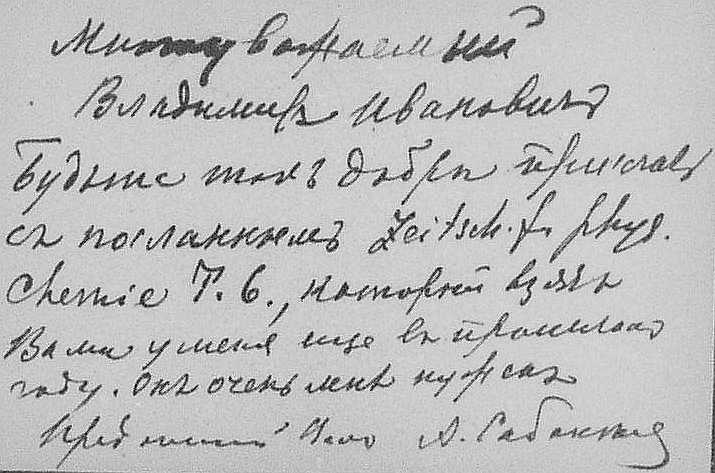 Многоуважаемый
Владимиръ Ивановичъ
Будьте такъ добры прислать
съ посланнымъ Zeitsch. f. phys.
Chemie T. 6., который взятъ
Вами у меня еще въ прошломъ
году. Онъ очень мнѣ нуженъ
А. Сабанѣевъ